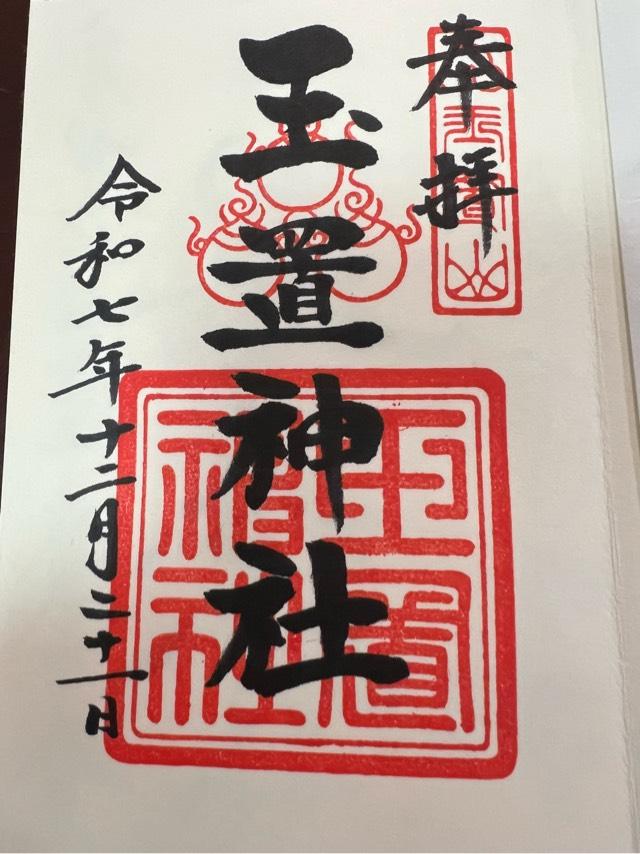 奉拝
玉置神社
玉置
神社
令和七年十二月二十一日